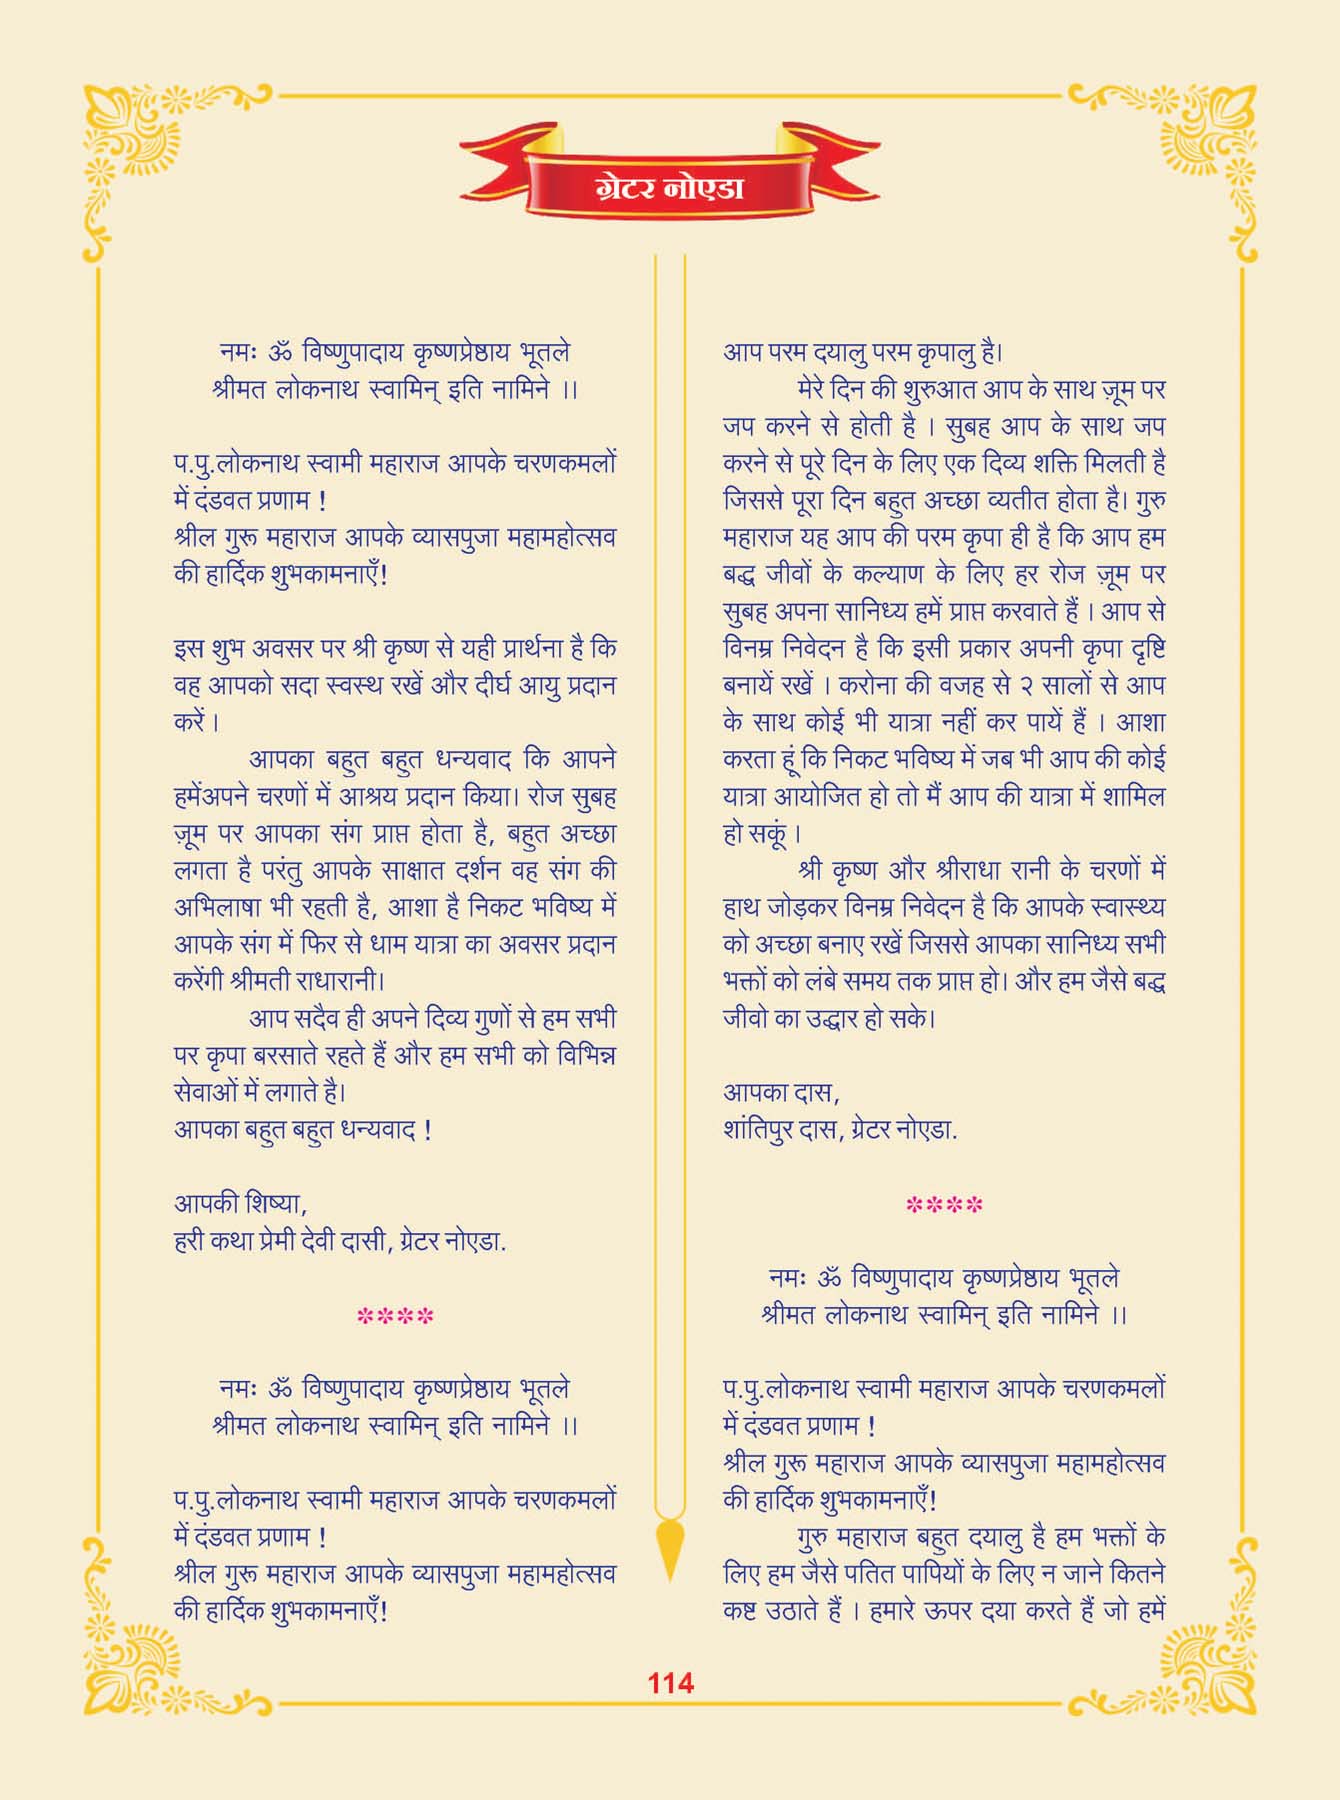 ग्रेटर नोएडा
नमः ॐ विष्णुपादाय कृष्णप्रेष्ठाय भूतले
श्रीमत लोकनाथ स्वामिन् इति नामिने ।।
प.पु.लोकनाथ स्वामी महाराज आपके चरणकमलों
में दंडवत प्रणाम !
श्रील गुरू महाराज आपके व्यासपुजा महामहोत्सव
की हार्दिक शुभकामनाएँ!
इस शुभ अवसर पर श्री कृष्ण से यही प्रार्थना है कि
वह आपको सदा स्वस्थ रखें और दीर्घ आयु प्रदान
करें ।
आपका बहुत बहुत धन्यवाद कि आपने
हमेंअपने चरणों में आश्रय प्रदान किया। रोज सुबह
ज़ूम पर आपका संग प्राप्त होता है, बहुत अच्छा
लगता है परंतु आपके साक्षात दर्शन वह संग की
अभिलाषा भी रहती है, आशा है निकट भविष्य में
आपके संग में फिर से धाम यात्रा का अवसर प्रदान
करेंगी श्रीमती राधारानी।
आप सदैव ही अपने दिव्य गुणों से हम सभी
पर कृपा बरसाते रहते हैं और हम सभी को विभिन्न
सेवाओं में लगाते है।
आपका बहुत बहुत धन्यवाद !
आपकी शिष्या,
हरी कथा प्रेमी देवी दासी, ग्रेटर नोएडा.
****
नमः ॐ विष्णुपादाय कृष्णप्रेष्ठाय भूतले
श्रीमत लोकनाथ स्वामिन् इति नामिने ।।
प.पु.लोकनाथ स्वामी महाराज आपके चरणकमलों
में दंडवत प्रणाम !
श्रील गुरू महाराज आपके व्यासपुजा महामहोत्सव
की हार्दिक शुभकामनाएँ!
आप परम दयालु परम कृपालु है।
मेरे दिन की शुरुआत आप के साथ ज़ूम पर
जप करने से होती है । सुबह आप के साथ जप
करने से पूरे दिन के लिए एक दिव्य शक्ति मिलती है
जिससे पूरा दिन बहुत अच्छा व्यतीत होता है। गुरु
महाराज यह आप की परम कृपा ही है कि आप हम
बद्ध जीवों के कल्याण के लिए हर रोज ज़ूम पर
सुबह अपना सानिध्य हमें प्राप्त करवाते हैं । आप से
विनम्र निवेदन है कि इसी प्रकार अपनी कृपा दृष्टि
बनायें रखें । करोना की वजह से २ सालों से आप
के साथ कोई भी यात्रा नहीं कर पायें हैं । आशा
करता हूं कि निकट भविष्य में जब भी आप की कोई
यात्रा आयोजित हो तो मैं आप की यात्रा में शामिल
हो सकूं ।
श्री कृष्ण और श्रीराधा रानी के चरणों में
हाथ जोड़कर विनम्र निवेदन है कि आपके स्वास्थ्य
को अच्छा बनाए रखें जिससे आपका सानिध्य सभी
भक्तों को लंबे समय तक प्राप्त हो। और हम जैसे बद्ध
जीवो का उद्धार हो सके।
आपका दास,
शांतिपुर दास, ग्रेटर नोएडा.
****
नमः ॐ विष्णुपादाय कृष्णप्रेष्ठाय भूतले
श्रीमत लोकनाथ स्वामिन् इति नामिने ।।
प.पु.लोकनाथ स्वामी महाराज आपके चरणकमलों
में दंडवत प्रणाम !
श्रील गुरू महाराज आपके व्यासपुजा महामहोत्सव
की हार्दिक शुभकामनाएँ!
गुरु महाराज बहुत दयालु है हम भक्तों के
लिए हम जैसे पतित पापियों के लिए न जाने कितने
कष्ट उठाते हैं । हमारे ऊपर दया करते हैं जो हमें
114